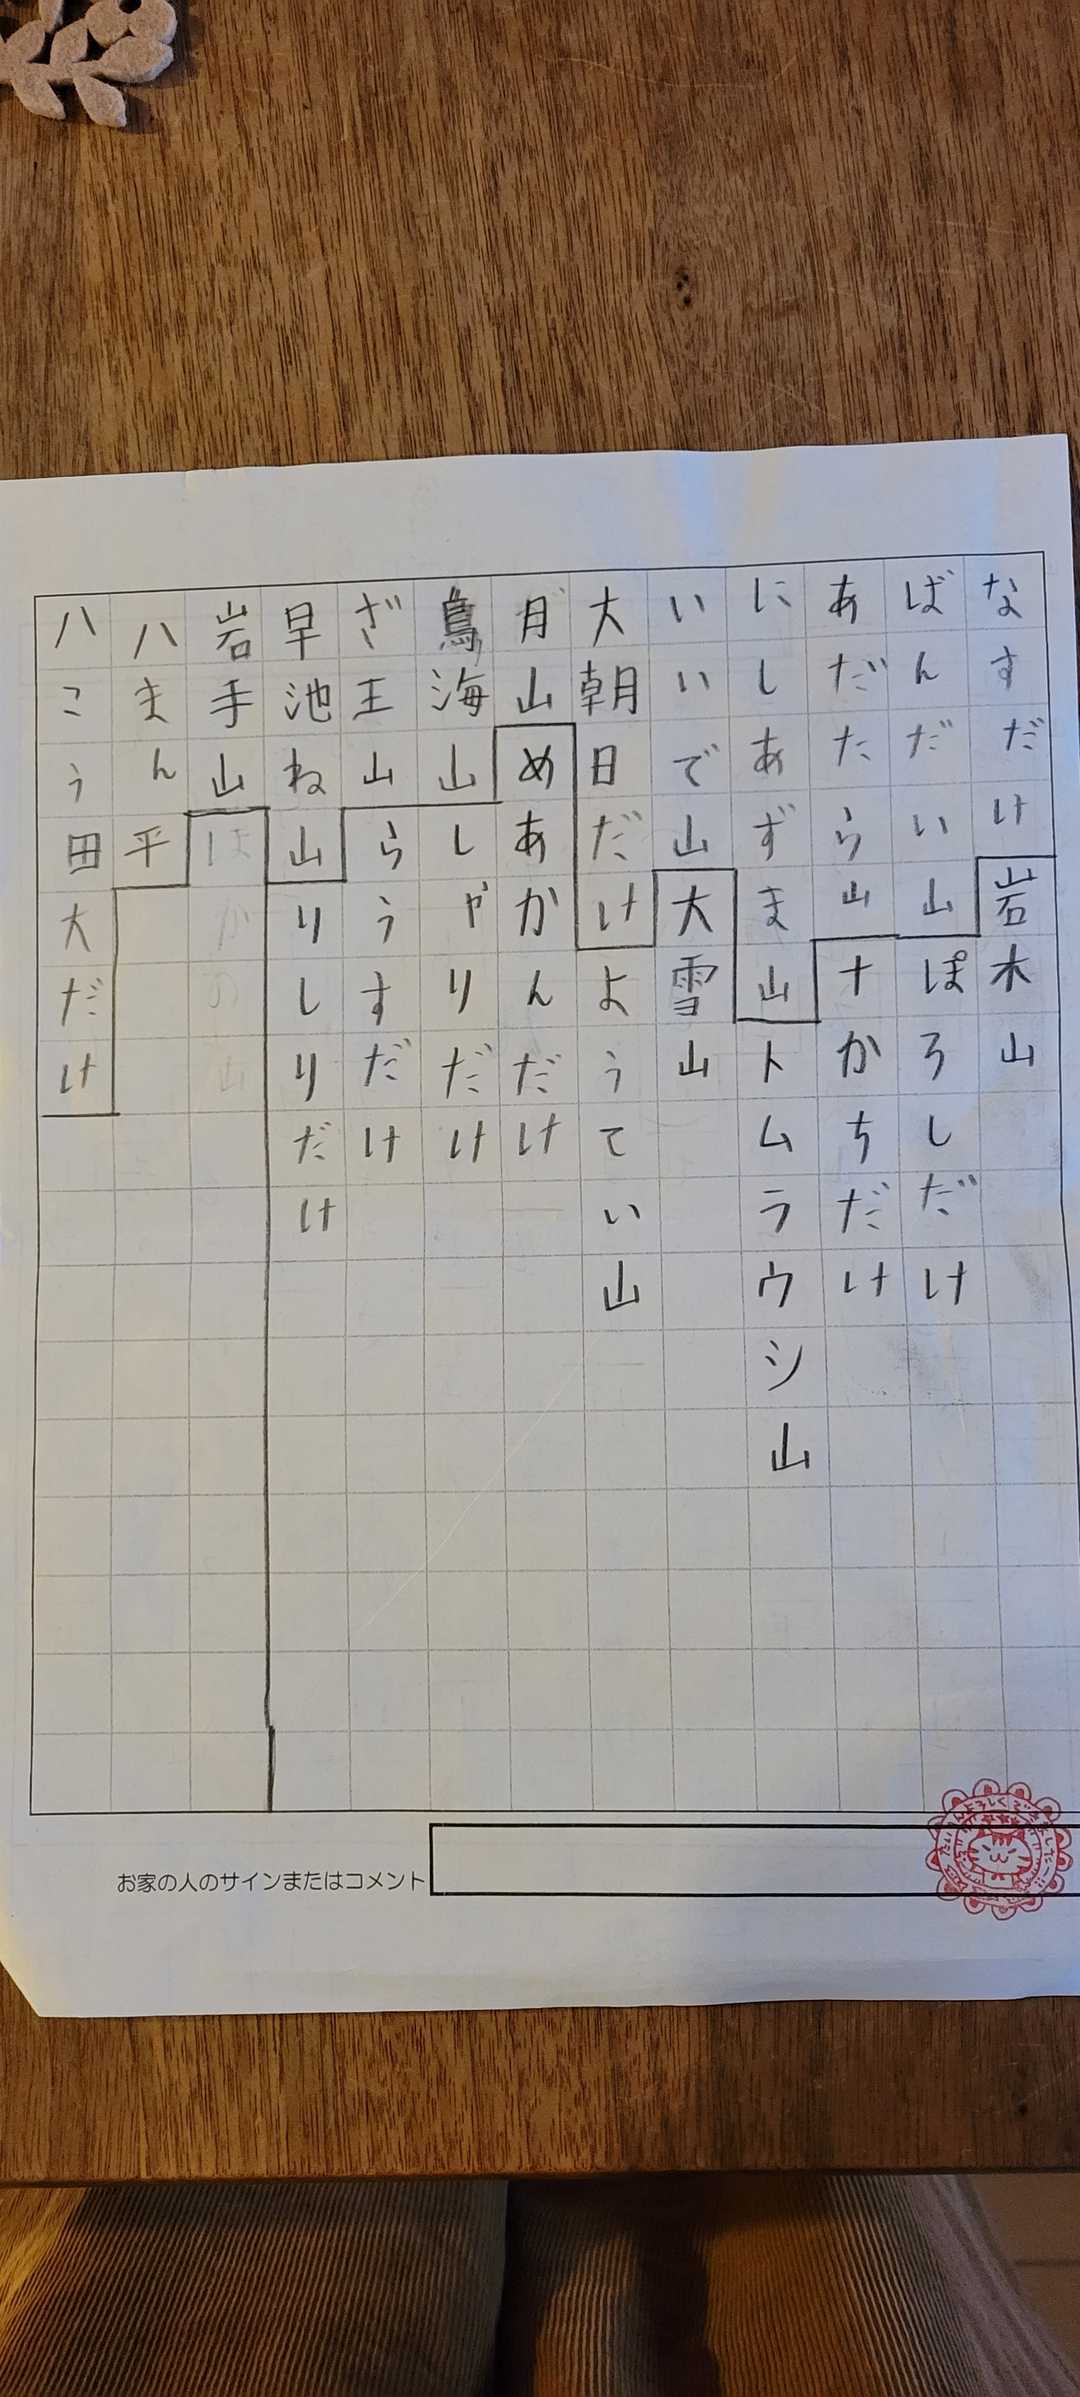 なすだけ岩木山
ばんだい山ぽろしだけ
あだたら山十かちだけ
にしあずま山トムラウシ山
いいで山大雪山
大朝日だけようてい山
月山めあかんだけ
鳥海山しゃりだけ
ざ王山らうすだけ
早池ね山りしりだけ
岩手山
八まん平
八こうま田大だけ
お家の人のサインまたはコメント